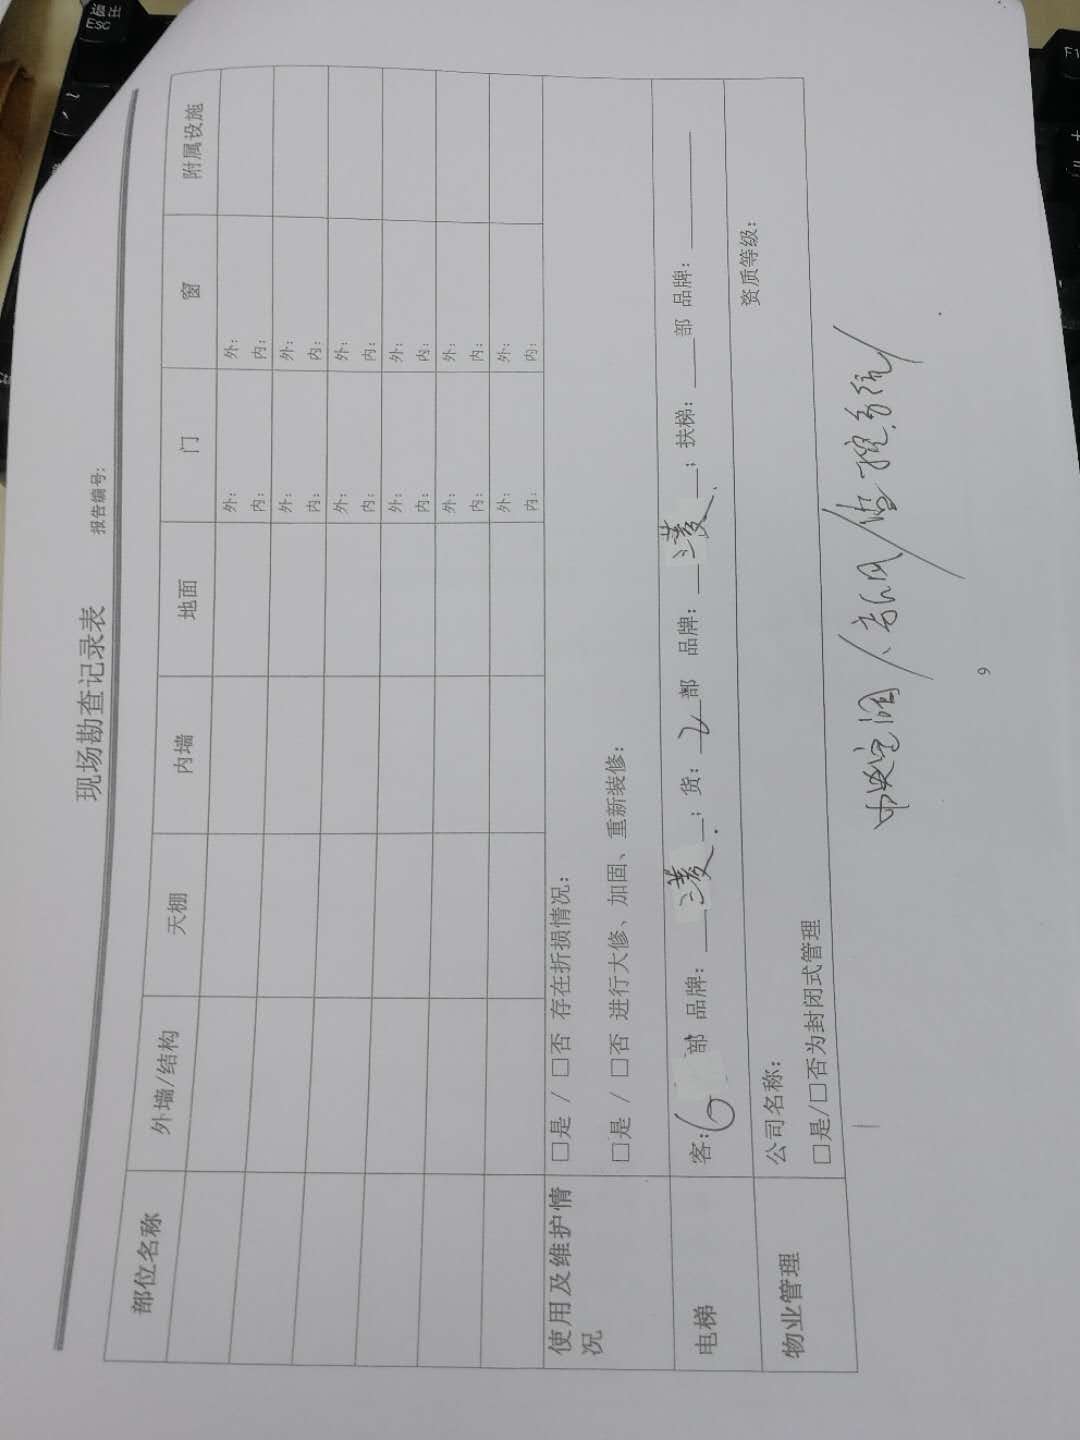 现场勘查记录表
报告编号:
部位名称 外墙/结构 天棚 内墙 地面 门 窗 附属设施
外: 外:
内: 内:
外: 外:
内: 内:
外: 外:
内: 内:
外: 外:
内: 内:
外: 外:
内: 内:
外: 外:
内: 内:
使用及维护情况 □是 / □否 存在折损情况:
□是 / □否 进行大修、加固、重新装修:
电梯 客:6部 品牌: 三菱; 货: 2部 品牌: 三菱; 扶梯: 部 品牌:
物业管理 公司名称: 资质等级:
□是/□否为封闭式管理
中央空调 系统
9